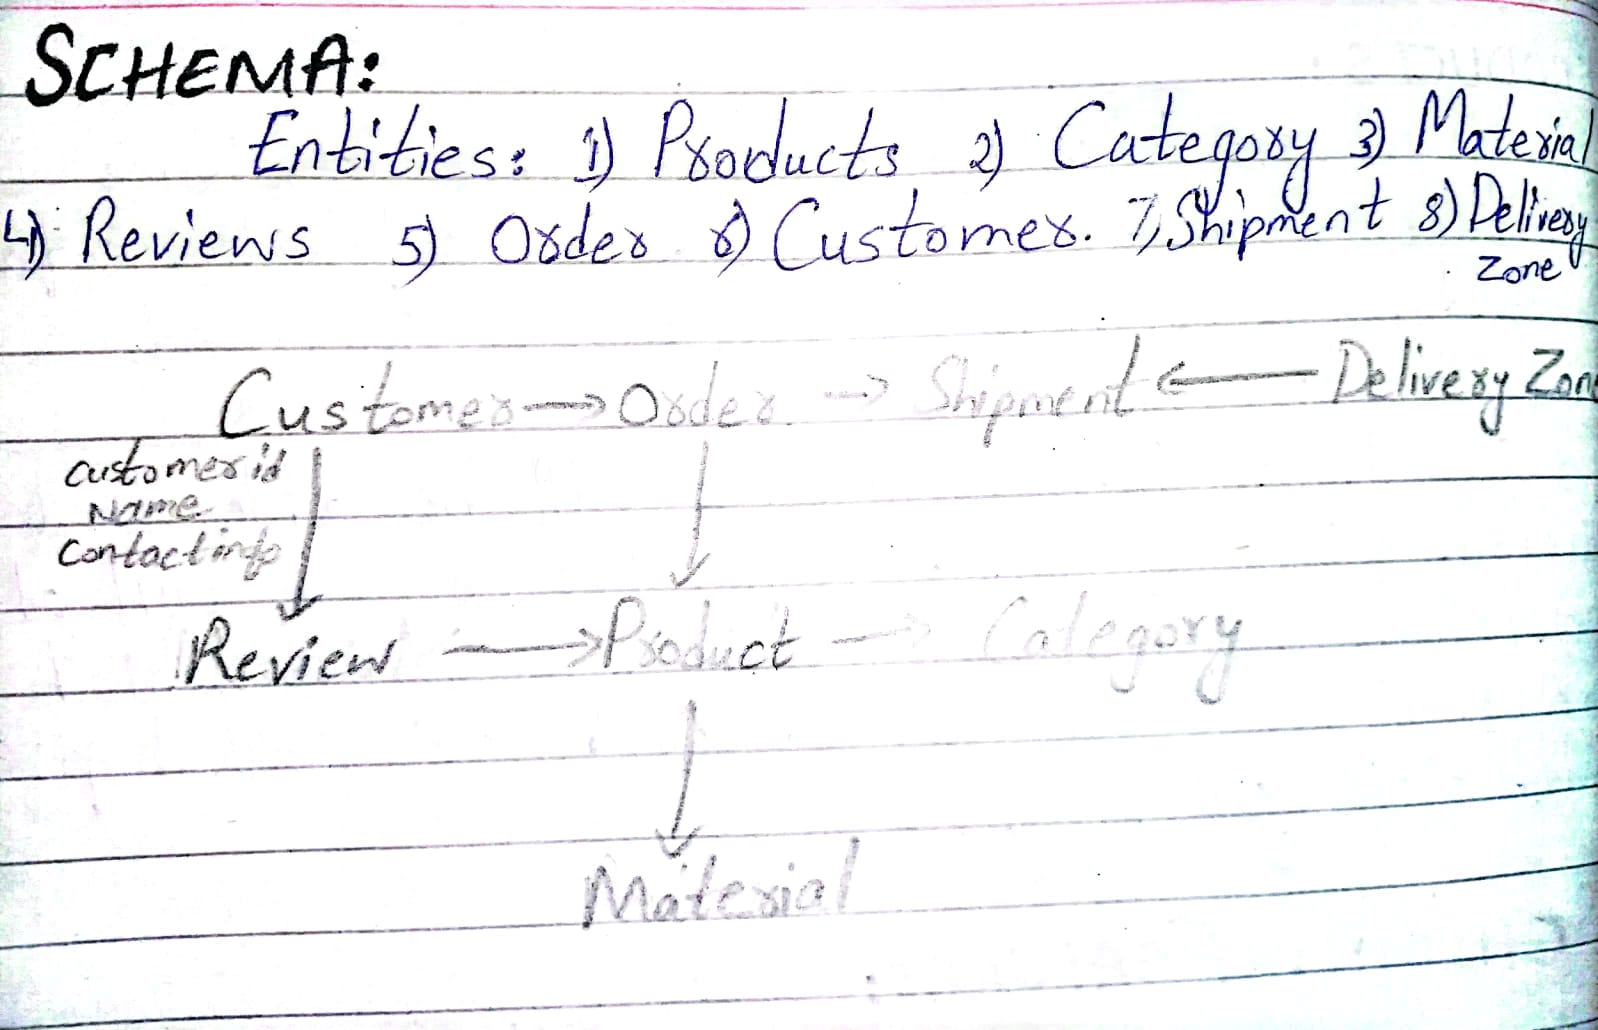 SCHEMA:
Entities: 1) Products 2) Category 3) Material
4) Reviews 5) Order 6) Customer. 7) Shipment 8) Delivery
Zone
Customer → Order → Shipment ← Delivery Zone
customer id
Name
Contact info
Review → Product → Category
Material